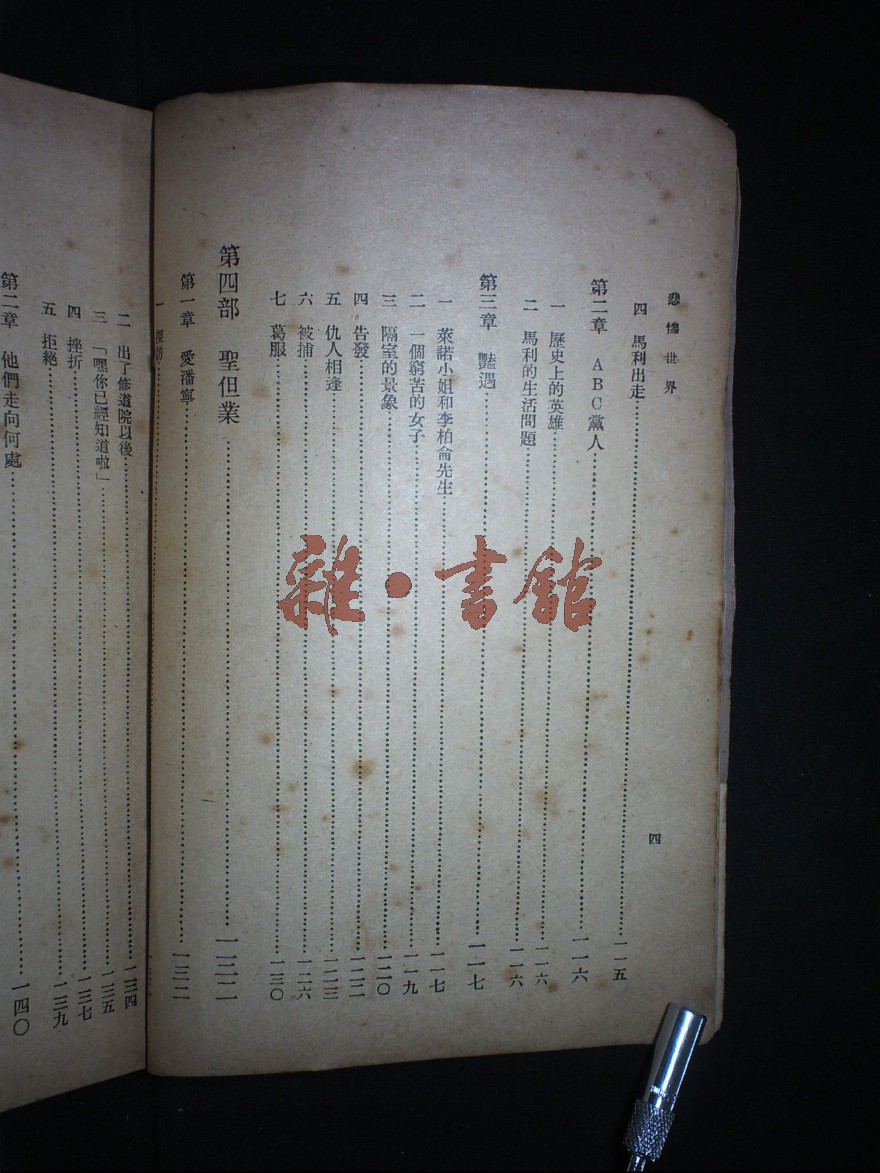 悲慘世界
四
四 馬利出走……一一五
第二章 ABC黨人……一一六
一 歷史上的英雄……一一六
二 馬利的生活問題……一一六
第三章 豔遇……一一七
一 萊諾小姐和李柏侖先生……一一七
二 一個窮苦的女子……一一九
三 隔室的景象……一二〇
四 告發……一二二
五 仇人相逢……一二三
六 被捕……一二六
七 葛服……一三〇
第四部 聖但業……一三二
第一章 愛潘寧……一三二
一
二 出了修道院以後……一三四
三 「嘿你已經知道啦」……一三五
四 挫折……一三七
五 拒絕……一三九
第二章 他們走向何處……一四〇
雜·書館